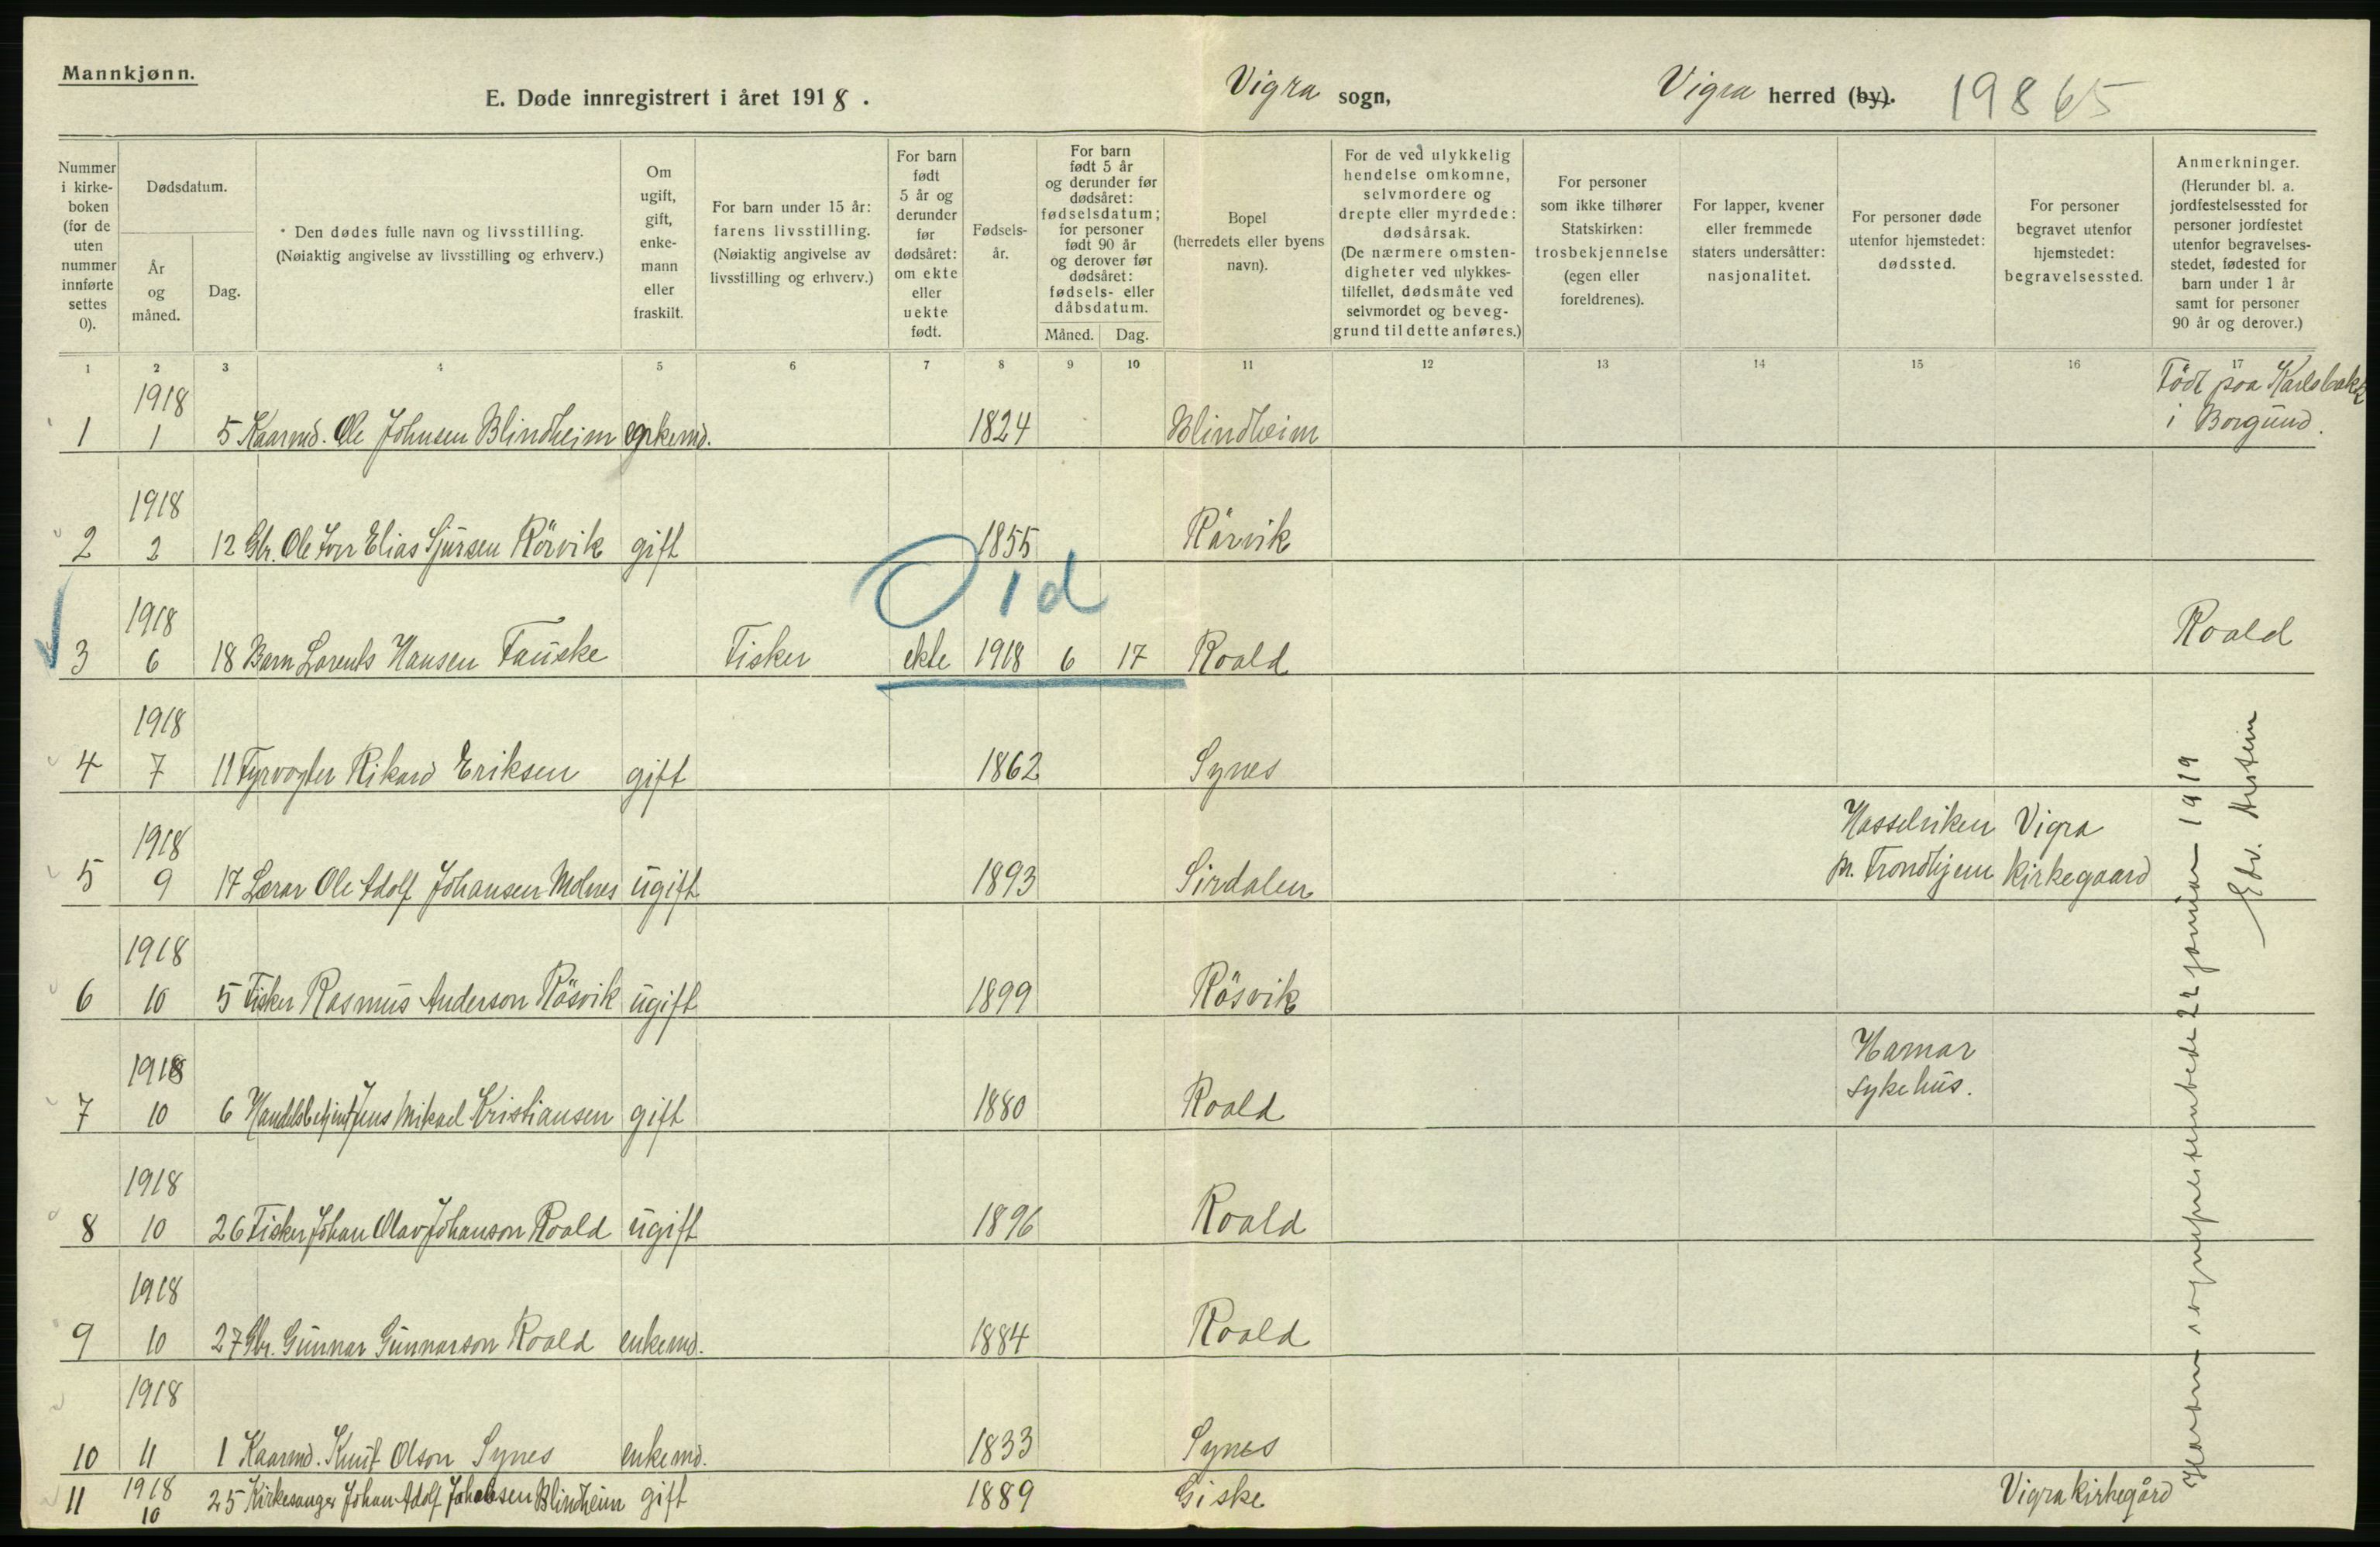 Mannkjønn.
E. Døde innregistrert i året 1918.
Vigra sogn,
Vigra herred (by).
19865
Nummer i kirke- boken (for de uten nummer innførte settes 0).
Dødsdatum.
År og måned.
Dag.
* Den dødes fulle navn og livsstilling.
(Nøiaktig angivelse av livsstilling og erhverv.)
Om ugift, gift, enke- mann eller fraskilt.
For barn under 15 år: farens livsstilling. (Nøiaktig angivelse av livsstilling og erhverv.)
For barn født 5 år og derunder før dødsåret: om ekte eller uekte født.
Fødsels- år.
For barn født 5 år og derunder før dødsåret: fødselsdatum; for personer født 90 år og derover før dødsåret: fødsels- eller dåbsdatum.
Måned.
Dag.
Bopel (herredets eller byens navn).
For de ved ulykkelig hendelse omkomne, selvmordere og drepte eller myrdede: dødsårsak. (De nærmere omsten- digheter ved ulykkes- tilfellet, dødsmåte ved selvmordet og beveg- grund til dette anføres.)
For personer som ikke tilhører Statskirken: trosbekjennelse (egen eller foreldrenes).
For lapper, kvener eller fremmede staters undersåtter: nasjonalitet.
For personer døde utenfor hjemstedet: dødssted.
For personer begravet utenfor hjemstedet: begravelsessted.
Anmerkninger. (Herunder bl. a. jordfestelsessted for personer jordfestet utenfor begravelses- stedet, fødested for barn under 1 år samt for personer 90 år og derover.)
1 2 3 4 5 6 7 8 9 10 11 12 13 14 15 16 17
1918 Född paa Karlsbakk
1 1 5 Kaarmd. Ole Johnsen Blindheim enkemd. 1824 Blindheim i Borgund.
1918
2 2 12 Gbr. Ole Iver Elias Sjursen Rörvik gift 1855 Rörvik
0 1 d
1918 Roald
3 6 18 Barn Lorents Hansen Fauske Fisker ekte 1918 6 17 Roald
1918
4 7 11 Fyrvogter Rikard Eriksen gift 1862 Synes
1918 Hasselviken Vigra
5 9 17 Lærar Ole Adolf Johansen Molnes ugift 1893 Sirdalen pr. Trondhjem Kirkegaard
1918
6 10 5 Fisker Rasmus Anderson Rösvik ugift 1899 Rösvik
1918 Hamar
7 10 6 Handelsbetjent Jens Mikael Kristiansen gift 1880 Roald sykehus.
1918
8 10 26 Fisker Johan Olav Johanson Roald ugift 1896 Roald
1918
9 10 27 Gbr. Gunnar Gunnarson Roald enkemd. 1884 Roald
1918
10 11 1 Kaarmd. Knut Olson Synes enkemd. 1833 Synes
11 1918 10 25 Kirkesanger Johan Adolf Johansen Blindheim gift 1889 Giske Vigra kirkegård
sogneprestembede 22 januar 1919
Edv.